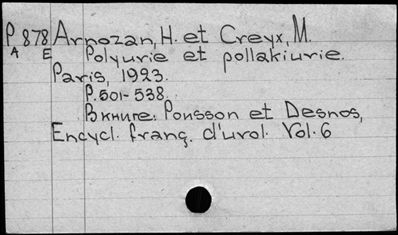 P 878 Arnozan, H. et Creyx, M.
A E Polyurie et pollakiurie.
Paris, 1923.
P. 501-538.
Вкниге: Pousson et Desnos,
Encycl. franç. d'urol. Vol. 6